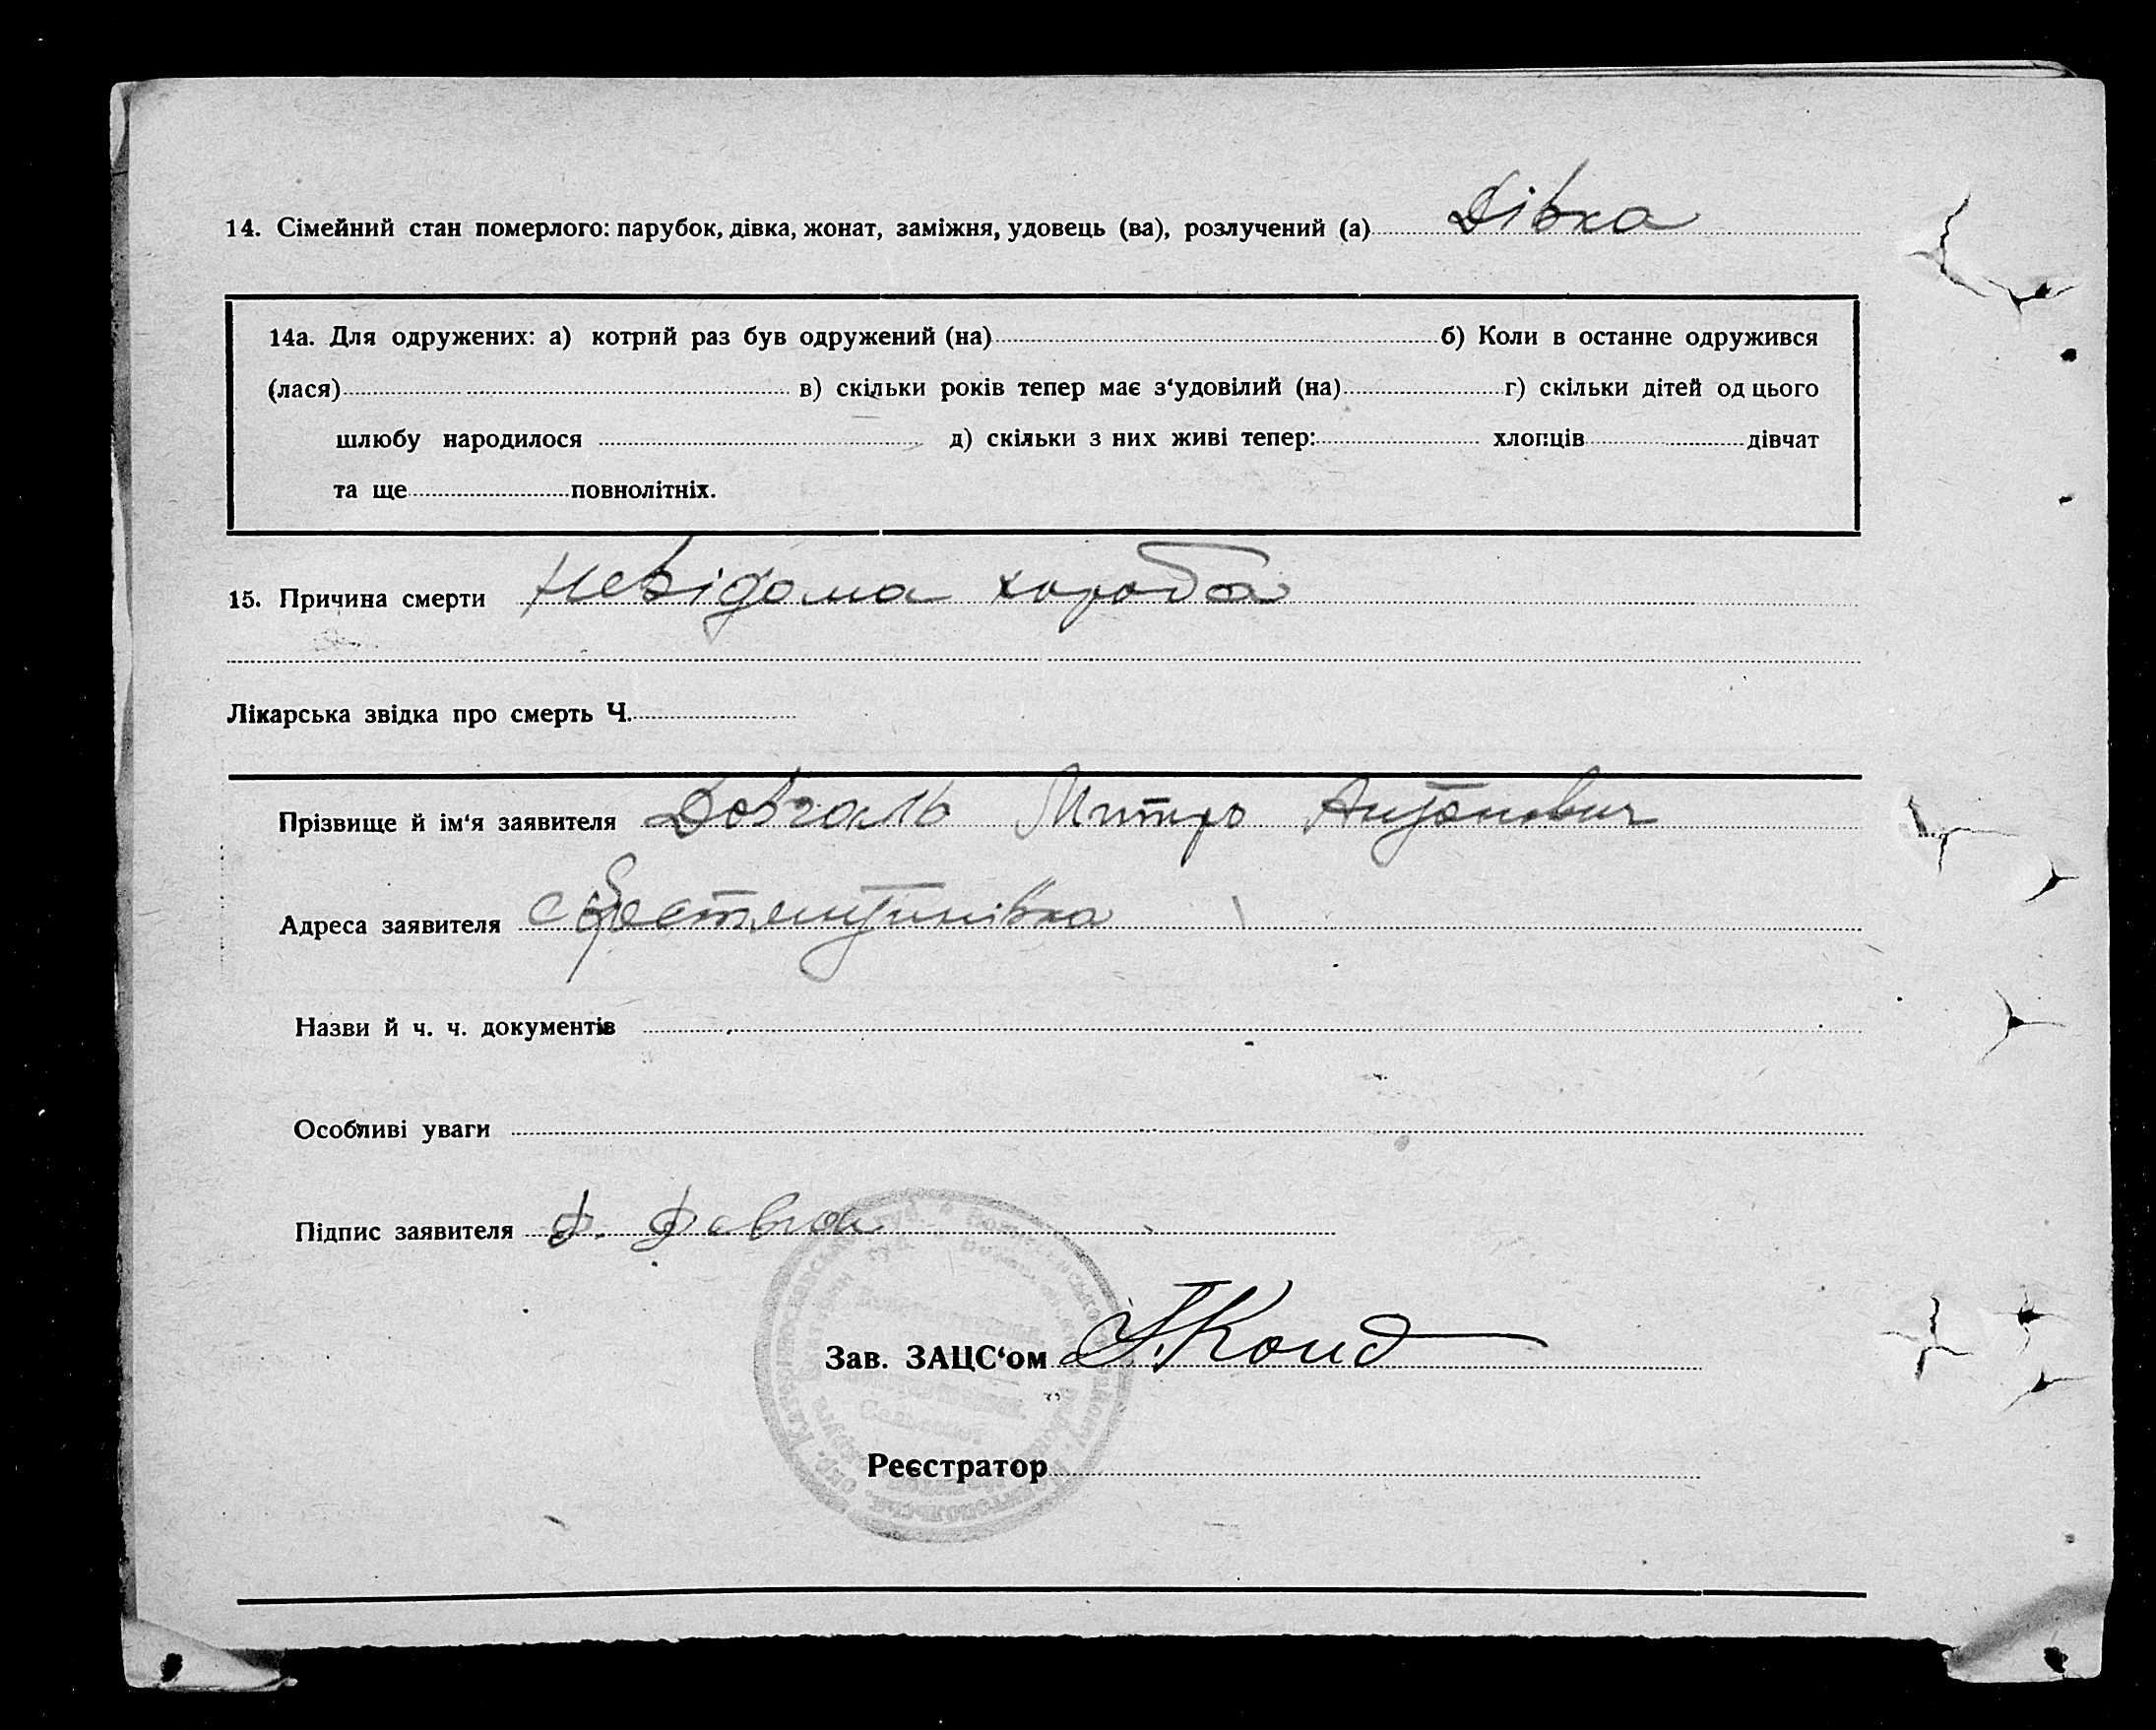 14. Сімейний стан померлого: парубок, дівка, жонат, заміжня, удовець (ва), розлучений (а) Дівка
14а. Для одружених: а) котрий раз був одружений (на) б) Коли в останне одружився
(лася) в) скільки років тепер має з‘удовілий (на) г) скільки дітей од цього
шлюбу народилося д) скільки з них живі тепер: хлопців дівчат
та ще повнолітніх.
15. Причина смерти невідома хороба
Лікарська звідка про смерть Ч.
Прізвище й ім‘я заявителя Довгаль Митро Антонович
Адреса заявителя с
Назви й ч. ч. документів
Особливі уваги
Підпис заявителя
Зав. ЗАЦС‘ом
Реєстратор